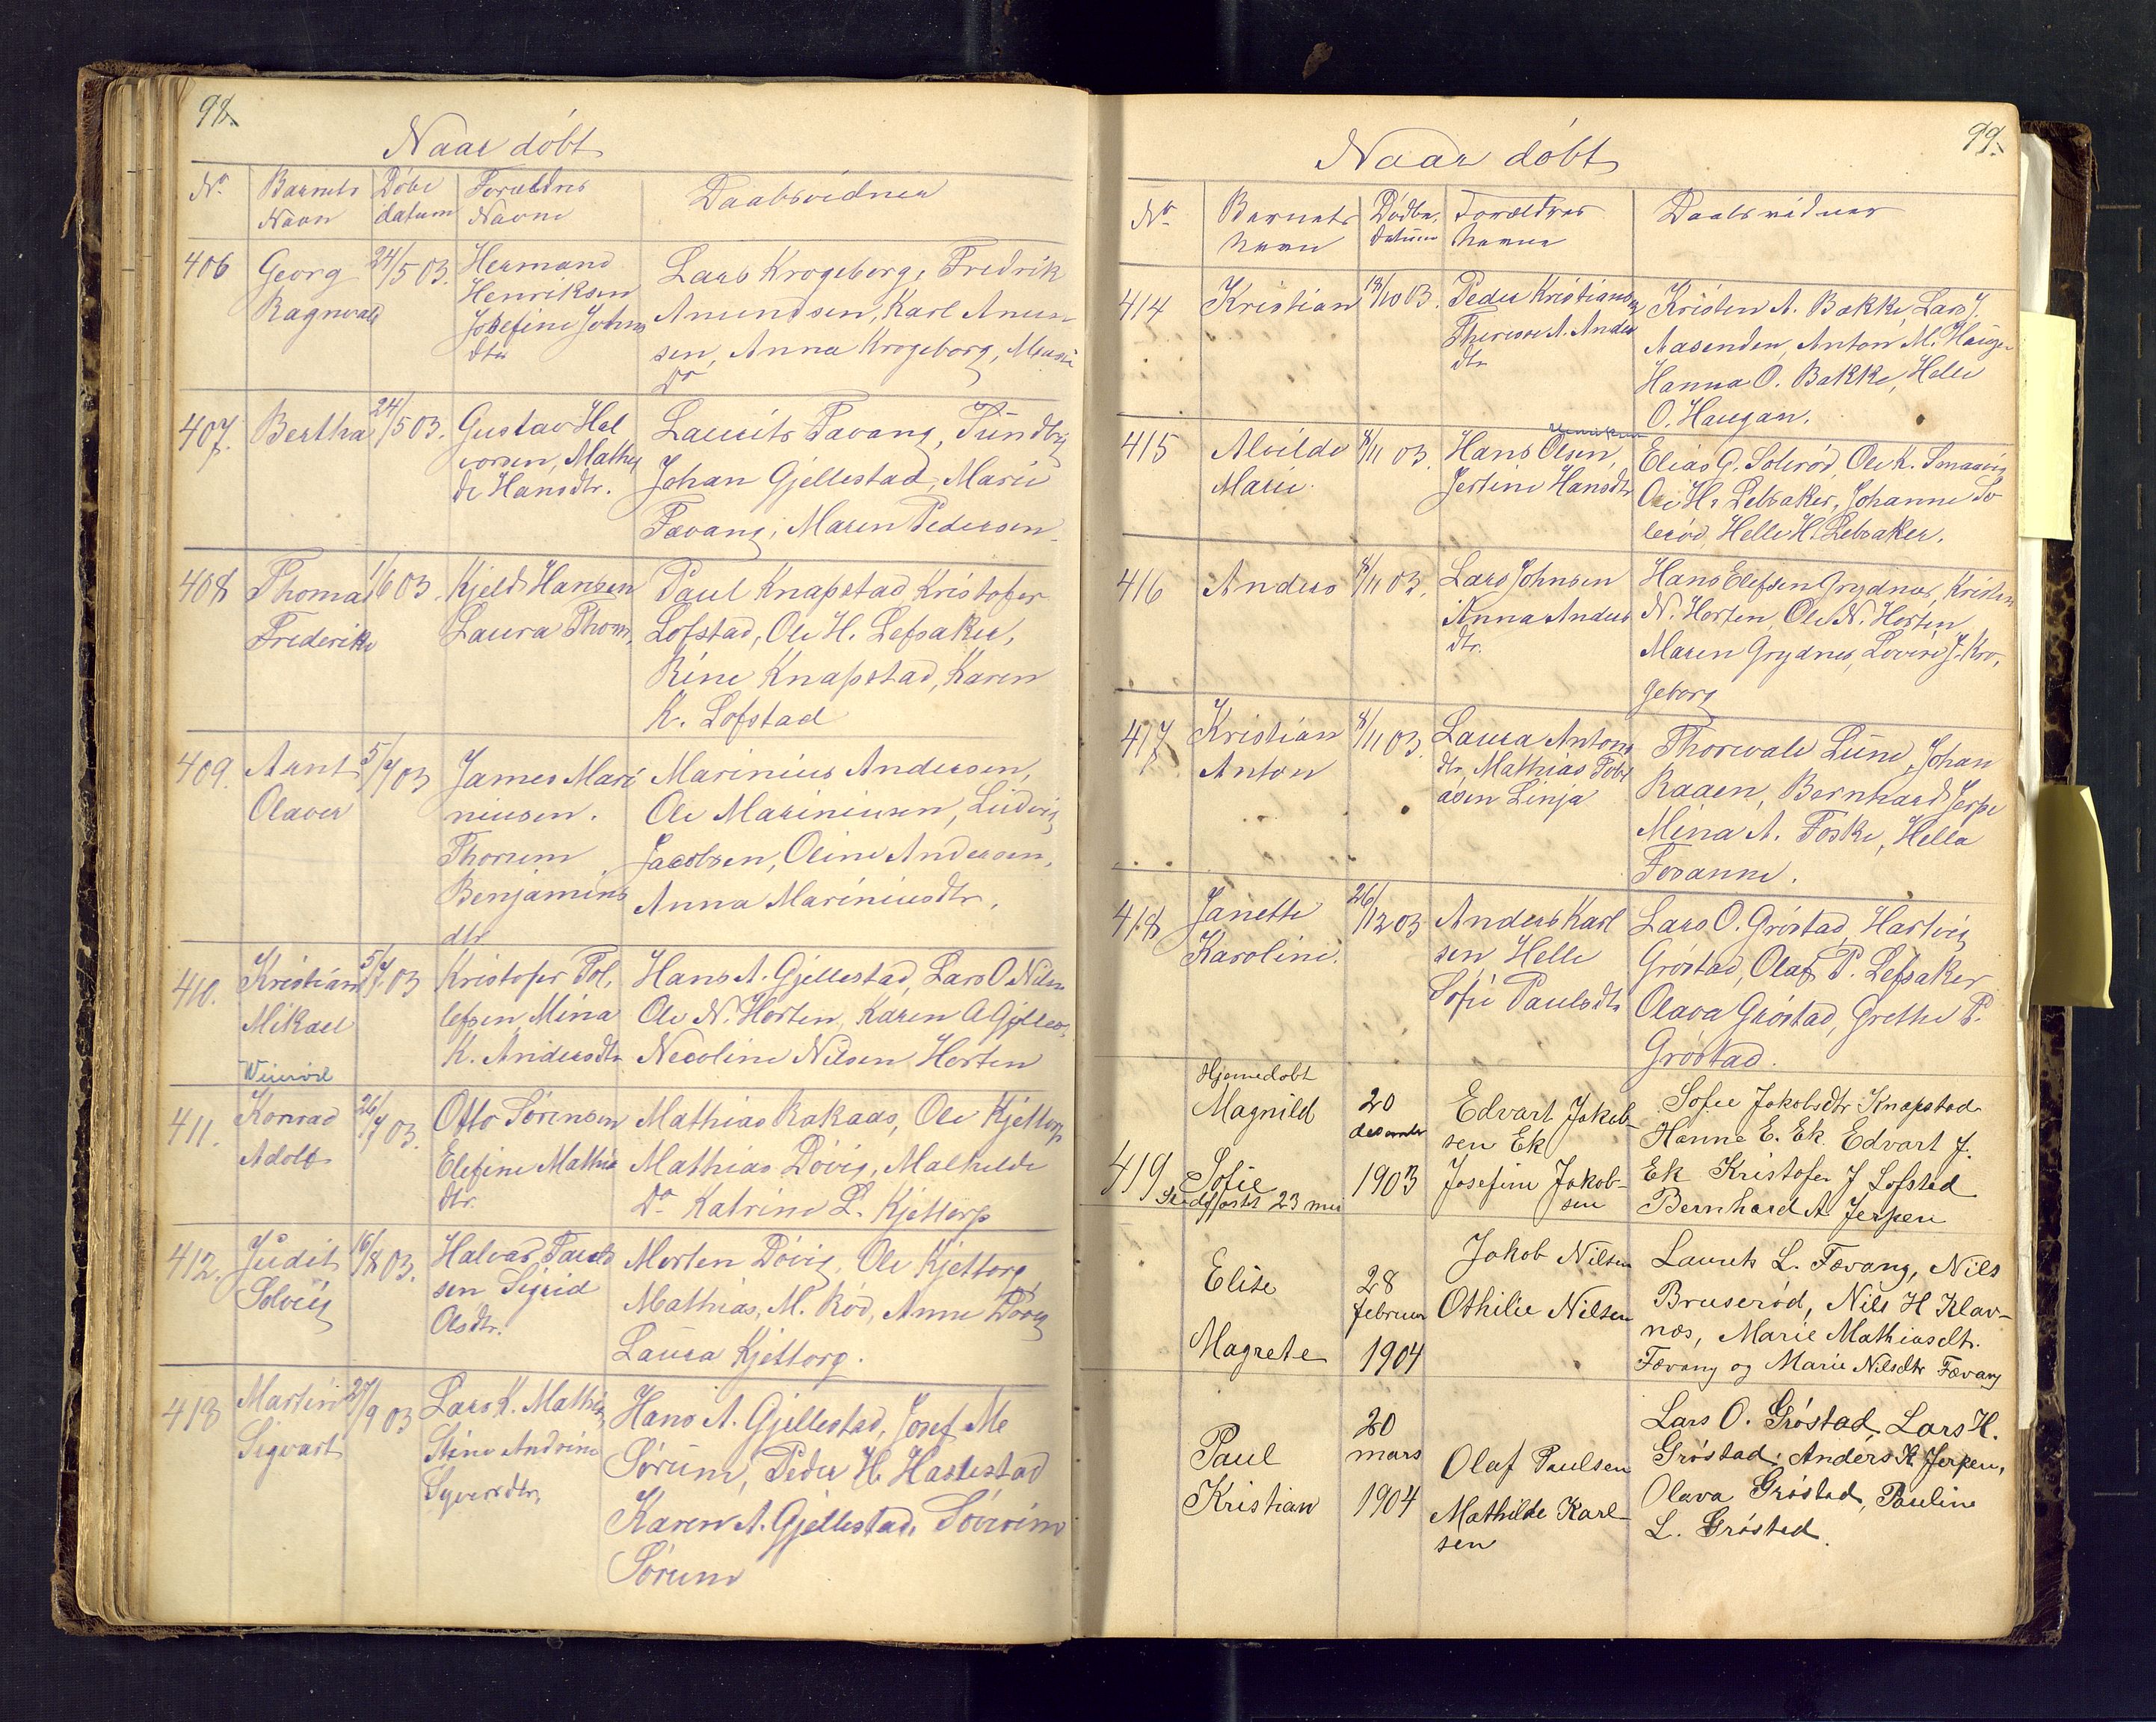 98.
Naar döbt
No. Barnets Navn Döbe datum Forældres Navne Daabsvidner
406 Georg Ragnvald 24/5 03. Hermand Henriksen Josefine Johns dtr
Lars Krogeborg, Fredrik
Amundsen, Karl Amun
sen, Anna Krogeborg, Marie
Do
407. Bertha 24/5 03. Gustav Hal vorsen, Mathil de Hansdtr.
Laurits Favang, Tundby
Johan Gjellestad, Marie
Fævang, Maren Pedersen.
408 Thomas Frederik 1/6 03. Kjeld Hansen Laura Thom.
Paul Knapstad, Kristofer
Lofstad, Ole H. Lefsaker,
Rine Knapstad, Karen
K. Lofstad
409. Arnt Olaves 5/7 03 James Mari niusen. Thorum Benjamins dtr
Marinius Andersen,
Ole Mariniusen, Ludvig
Jacobsen, Oline Andersen,
Anna Mariniusdtr.
410. Kristian Mikael 5/7 03 Kristofer Tol lefsen, Mina K. Andersdtr
Hans A. Gjellestad, Lars O. Nilsen
Ole N. Horten, Karen A Gjelles.
Necoline Nilsen Horten
411. Konrad Adolf 26/7 03. Otto Sörensen Elefine Mathis dtr.
Mathias Rakaas, Ole Kjettorp
Mathias Dövig, Malhilde
Do Katrine L. Kjettorp
412. Judit Solveig 16/8 03. Halvar Pauls sen Sigrid Olsdtr.
Morten Dövig, Ole Kjettorp
Mathias, M. Röd, Anne Dövig
Laura Kjettorp.
413 Martin Sigvart 27/9 03 Lars K. Mathis Stine Andrine Syversdtr,
Hans A. Gjellestad, Josef Me
Sörum, Peder H. Haslestad
Karen A. Gjellestad,
Sörum
99.
Naar döbt
No. Barnets navn datum Forældres navne Daabsvidner
414 Kristian 18/10 03. Peder Kristiansen Therese A. Anders dtr
Kristen A. Bakke, Lars J.
Aasenden, Anton M. Haugen
Hanna O. Bakke, Helle
O. Haugan.
415 Alvilde Marie. 8/11 03. Hans Olsen, Jertine Hansdtr
Elias G. Solerød, Ole K. Smaavig
Ole H. Lefsaker, Johanne So
lerød, Helle H. Lefsaker.
416 Anders 8/11 03. Lars Johnsen Anna Anders dtr.
Hans Elefsen Grydnes, Kristen
N. Horten, Ole N. Horten
Maren Grydnes, Lovise J. Kro,
geborg
417 Kristian Anton 8/11 03. Laura Antons dtr, Mathias Tobi asen Linja
Thorvald Lune, Johan
Raaen, Bernhard Jerpe
Mina A. Foske, Hella
Fosanne.
418 Janette Karoline. 26/12 03 Anders Karl sen Helle Sofie Paulsdtr
Lars O. Gröstad, Hartvig
Gröstad, Olaf P. Lefsaker
Olava Gröstad, Grethe P.
Gröstad.
Hjemedöbt
419 Magnild Sofie 20 desember 1903 Edvart Jakob- sen Ek Josefine Jakob- sen
Stadfæstet 23 mai
Sofie Jakobsdtr Knapstad
Hanne E. Ek. Edvart J.
Ek Kristofer J Lofsted
Bernhard A Jerpen
Elise Magrete 28 februar 1904 Jakob Nilsen Othilie Nilsen
Laurets L. Fævang, Nils
Bruserød, Nils H Klav-
næs, Marie Mathiasdtr.
Fævang og Marie Nilsdtr Fævang
Paul Kristian 20 mars 1904 Olaf Paulsen Mathilde Karl- sen
Lars O. Gröstad, Lars H.
Gröstad, Anders K. Jerpen,
Olava Gröstad, Pauline
L. Gröstad.